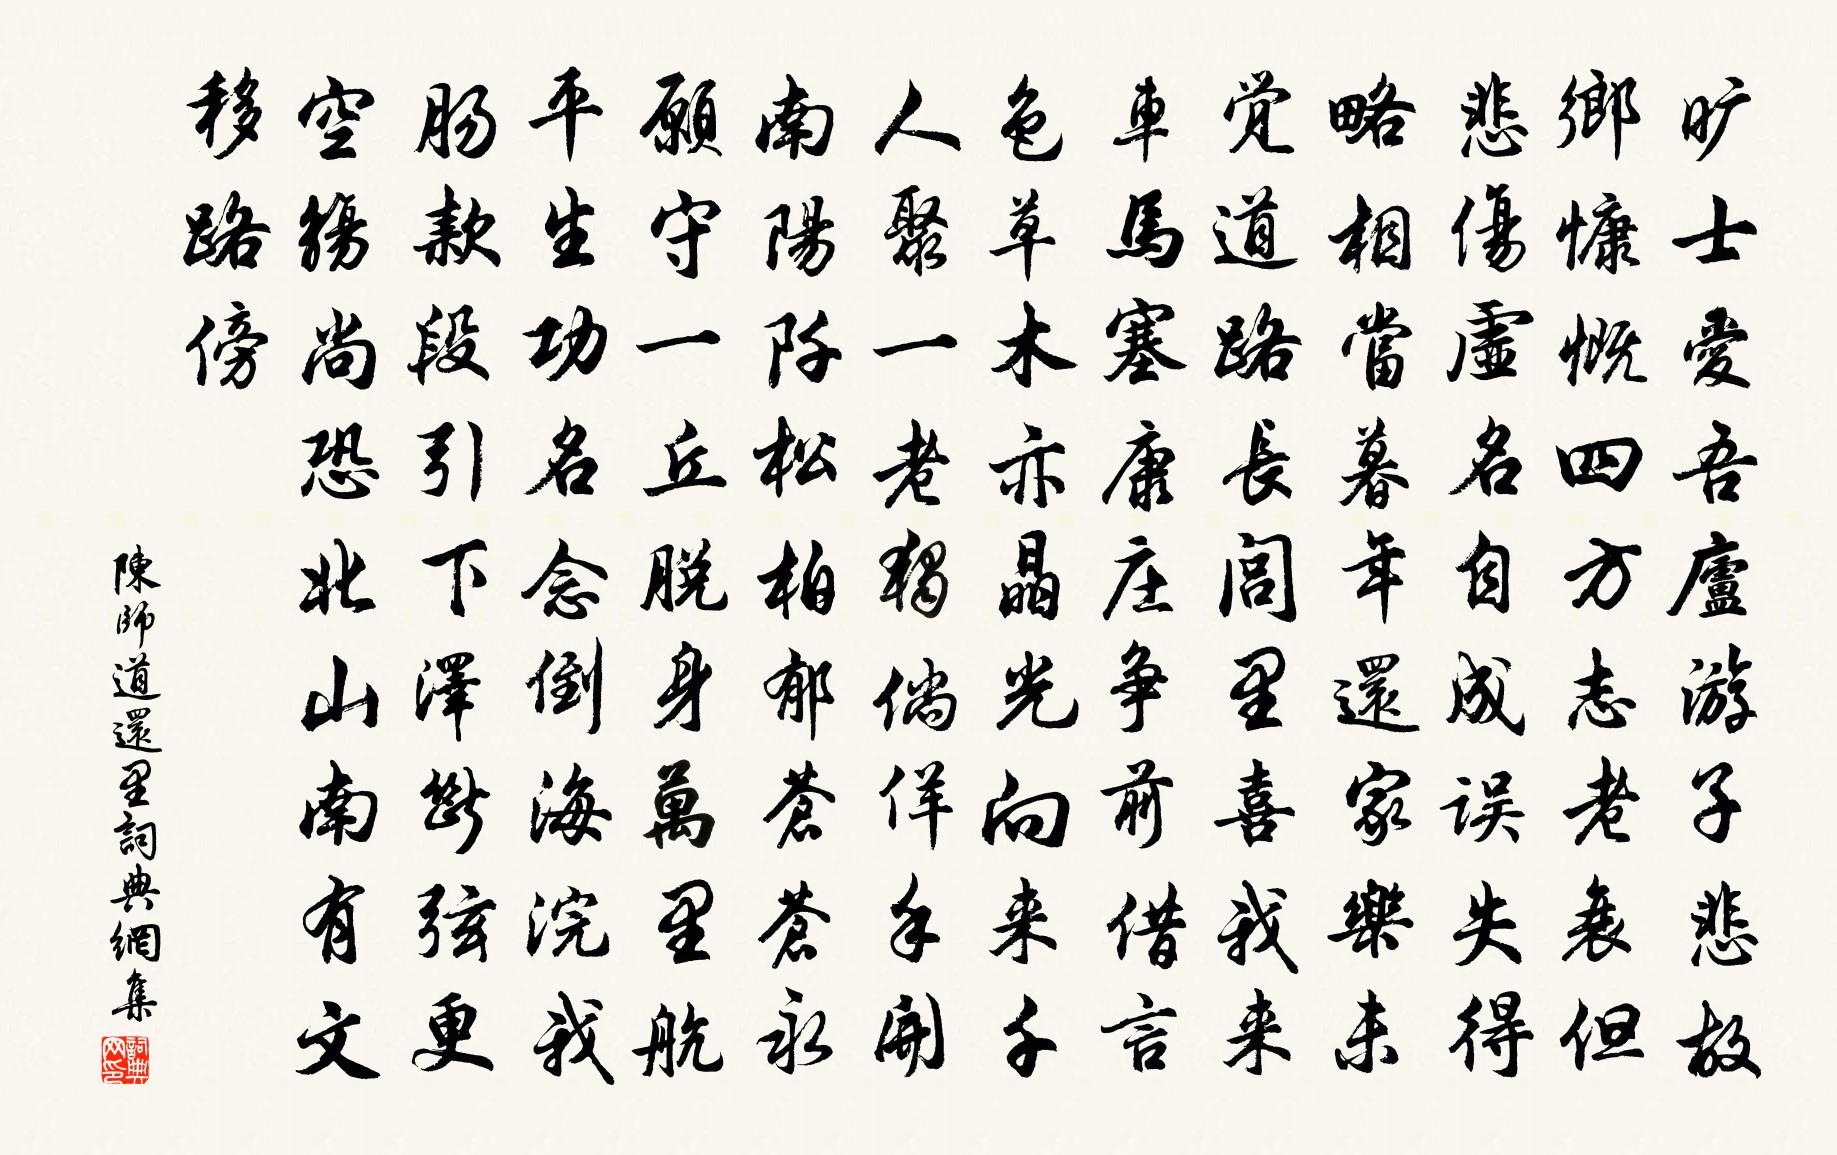 旷士愛吾廬游子悲故
鄉慷慨四方志老衰但
悲傷虛名自成误失得
略相當暮年還家樂未
覚道路長閭里喜我来
車馬塞康庄争前借言
色草木亦晶光向来千
人聚一老獨倘佯手開
南陽阡松柏郁蒼蒼永
願守一丘脱身萬里航
平生功名念倒海浣我
肠款段引下澤斷弦更
空觴尚恐北山南有文
移路傍
陳師道還里詞典網集
詞典网印